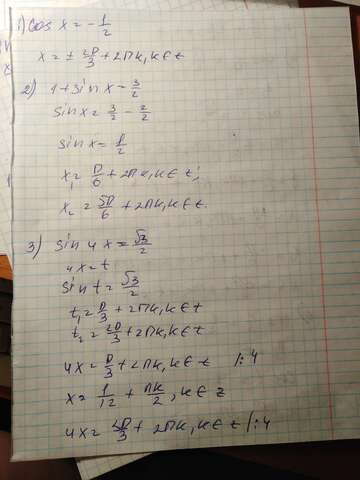 1) cos x = - 1/2
x = ± 2π/3 + 2πk, k ∈ z
2) 1 + sin x = 3/2
sin x = 3/2 - 2/2
sin x = 1/2
x₁ = π/6 + 2πk, k ∈ z;
x₂ = 5π/6 + 2πk, k ∈ z.
3) sin 4x = √3/2
4x = t
sin t = √3/2
t₁ = π/3 + 2πk, k ∈ z
t₂ = 2π/3 + 2πk, k ∈ z
4x = π/3 + 2πk, k ∈ z |:4
x = π/12 + πk/2, k ∈ z
4x = 2π/3 + 2πk, k ∈ z |:4